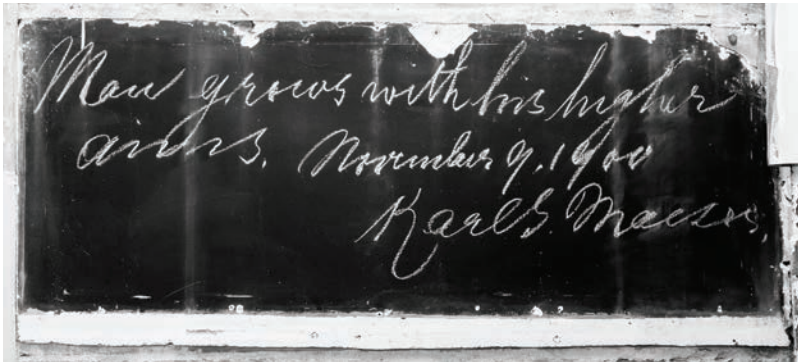 Man grows with his higher
aims. November 9, 1900
Karl G. Maeser.